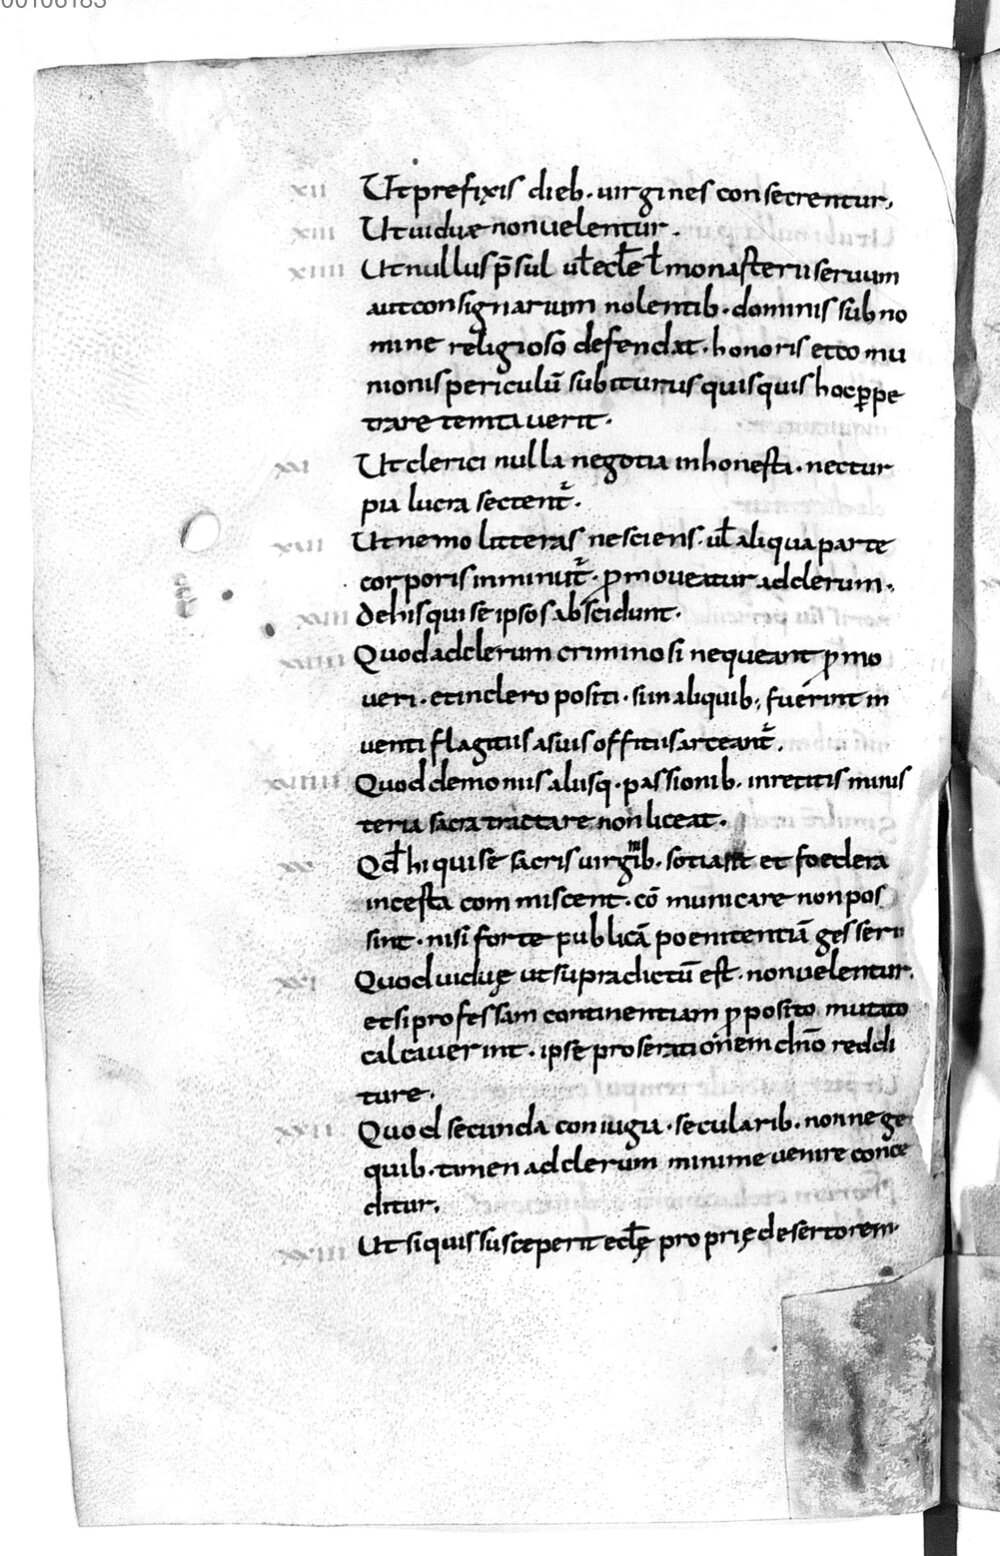 00106183
xii Ut prefixis dieb· uirgines consecrentur,
xiii Ut uiduae non uelentur.
xiiii Ut nullus p̄sul ul̄ ecłe ł monasterii seruum
aut consignarum nolentib· dominis sub no
mine religioso defendat· honoris et co mu
nionis periculū subiturus quisquis hoc ꝑpe
trare temtauerit·
Ut clerici nulla negotia inhonesta· nec tur
pia lucra sectent̄·
Ut nemo litteras nesciens· ul̄ aliqua parte
corporis inminut̄· ꝓmoueatur ad clerum·
xviii de his qui se ipsos abscidunt·
xviiii Quod ad clerum criminosi nequeant ꝓmo
ueri· et in clero positi· si in aliquib; fuerint in
uenti flagitiis a suis offitiis arceant̄·
Quod demoniis aliisq· passionib· inretitis minis
teria sacra tractare non liceat·
xx Qd̄ hi qui se sacris uirgīb· sotiant et foedera
incesta commiscent· cō municare non pos
sint· nisi forte publicā poenitentiā gesseri
xxi Quod uiduę ut supradictū est· non uelentur·
et si professam continentiam ꝓposito mutato
calcauerint· ipse pro se rationem dn̄o reddi
ture·
xxii Quod secunda coniugia· secularib· non nege
quib· tamen ad clerum minime uenire conce
ditur,
xxiii Ut si quis susceperit ecłę proprię desertorem·